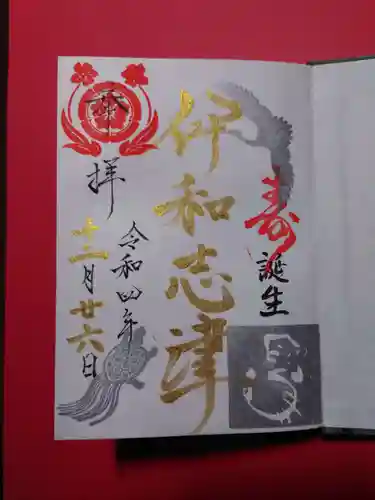 寿
誕生
伊和志津
奉拝
令和四年
十二月廿六日